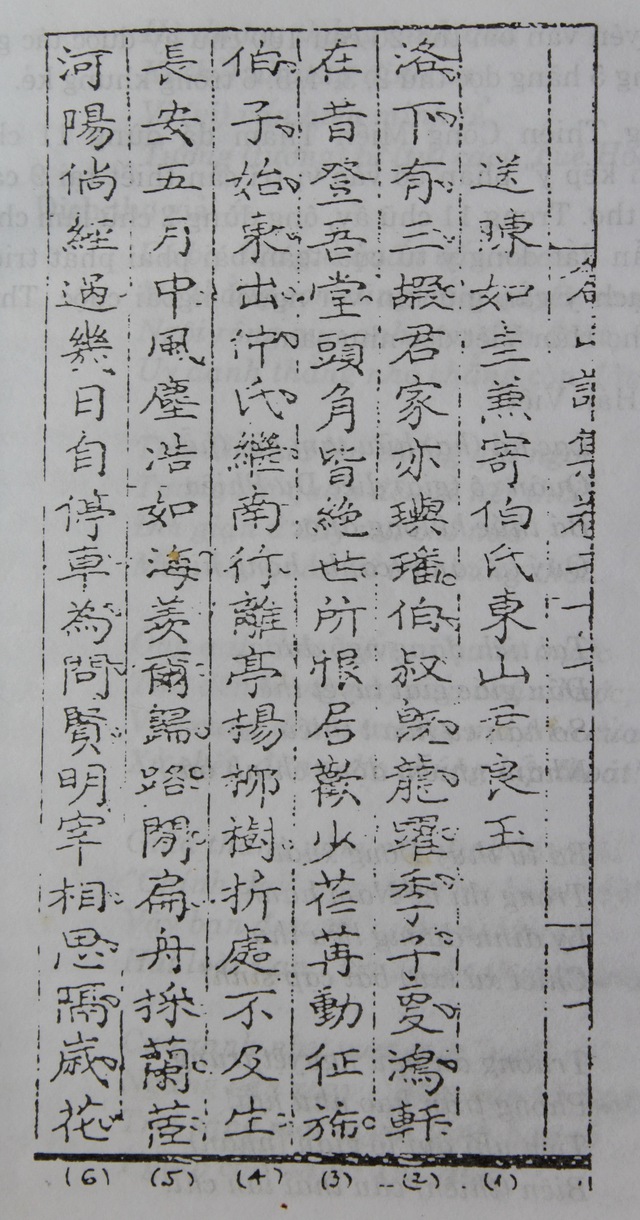 山詩集卷一
送陳如圭兼寄伯氏東山良玉 (1)
洛下有三嘏君家亦璵璠伯叔既龍躍季子更鴻軒 (2)
在昔登吾堂頭角皆絶世所恨居歡少花苒動征旆 (3)
伯子始東出仲氏繼南行離亭楊柳樹折處不及生 (4)
長安五月中風塵浩如海羨爾歸路閒扁舟採蘭茝 (5)
河陽倘經過幾日自停車為問賢明宰相思隔歲花 (6)